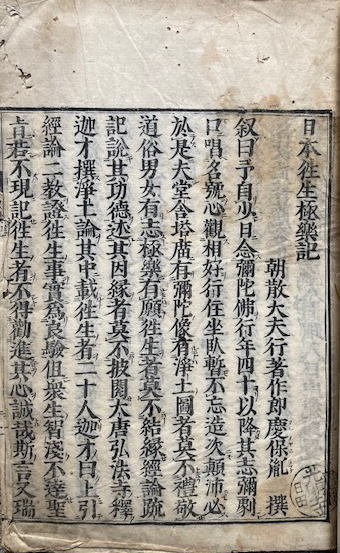 日本徃生極樂記
朝散大夫行著作郎慶保胤 撰
叙曰予自少日念彌陀佛行年四十以降其志彌劇
口唱名號心觀相好行住坐臥暫不忘造次顛沛必
於是夫堂舍塔廟有彌陀像有淨土圖者莫不禮敬
道俗男女有志極樂有願徃生者莫不結緣經論疏
記說其功德述其因緣者莫不披閱大唐弘法寺釋
迦才撰淨土論其中載徃生者二十人迦才曰上引
經論二教證徃生事實爲良驗但衆生智淺不達聖
旨若不現記徃生者不得勸進其心誠哉斯言又瑞